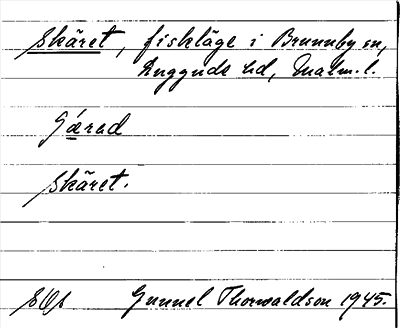 Skäret, fiskläge i Brunnby sn,
Luggude hd, Malm. l.
Gärad
Skäret.
Gunnel Thorwaldson 1945.